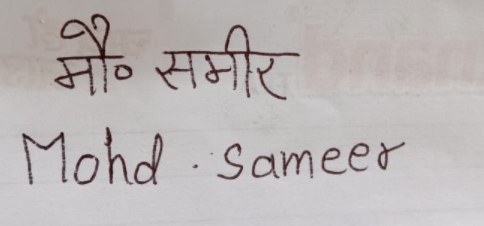 मौ० समीर
Mohd. Sameer